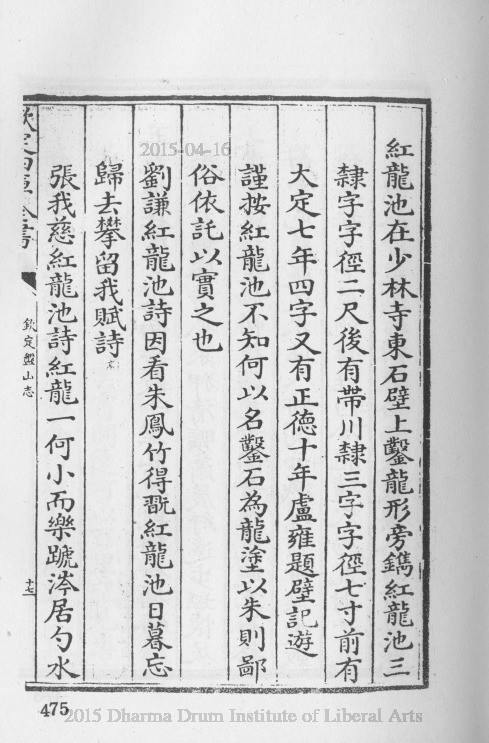 紅龍池在少林寺東石壁上鑿龍形旁鐫紅龍池三
隸字字徑二尺後有帶川隸三字字徑七寸前有
大定七年四字又有正德十年盧雍題壁記遊
謹按紅龍池不知何以名鑿石為龍塗以朱則鄙
俗依託以實之也
劉謙紅龍池詩因看朱鳳竹得翫紅龍池日暮忘
歸去攀留我賦詩
張我慈紅龍池詩紅龍一何小而樂蹏涔居勺水
欽定四庫全書
欽定盤山志
十七
475
2015-04-16
2015 Dharma Drum Institute of Liberal Arts